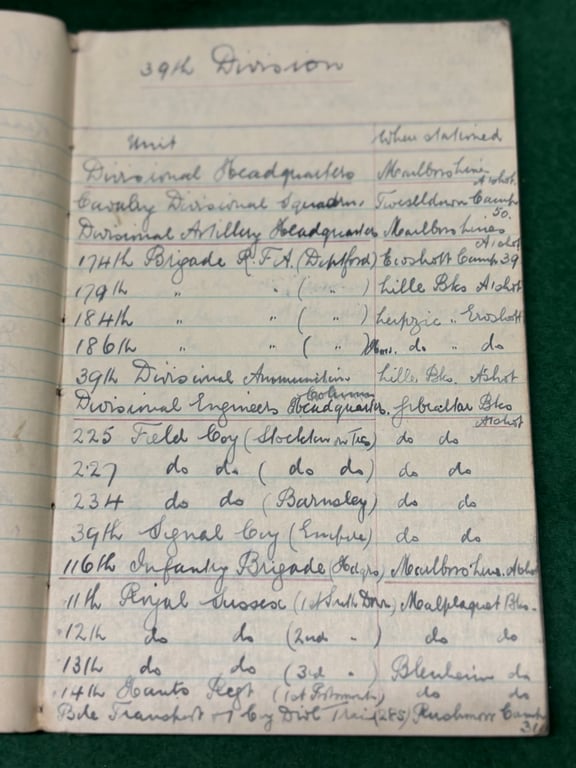 39th Division
Unit Where stationed
Divisional Headquarters Marlboro Lines Alshot
Cavalry Divisional Squadron. Tweseldown Camp 50.
Divisional Artillery Headquarters Marlboro Lines Alshot
174th Brigade R.F.A. (Deptford) Ewshott Camp 39
179th " " ( " ) Lille Bks Alshot
184th " " ( " ) Leipzic " Ewshott
186th " " ( " ) do " do
39th Divisional Ammunition Column Lille Bks. Alshot
Divisional Engineers Headquarters. Gibraltar Bks Alshot
225 Field Coy (Stockton on Tees) do do
227 do do ( do do ) do do
234 do do (Barnsley) do do
39th Signal Coy (Empire) do do
116th Infantry Brigade (Hdqrs) Marlboro' Lines. Alshot
11th Royal Sussex (1st South Down) Malplaquet Bks.
12th do do (2nd " ) do do
13th do do (3rd " ) Blenheim do
14th Hants Regt (1st Portsmouth) do do
Bde Transport & Coy Divl Train (285) Rushmoor Camp